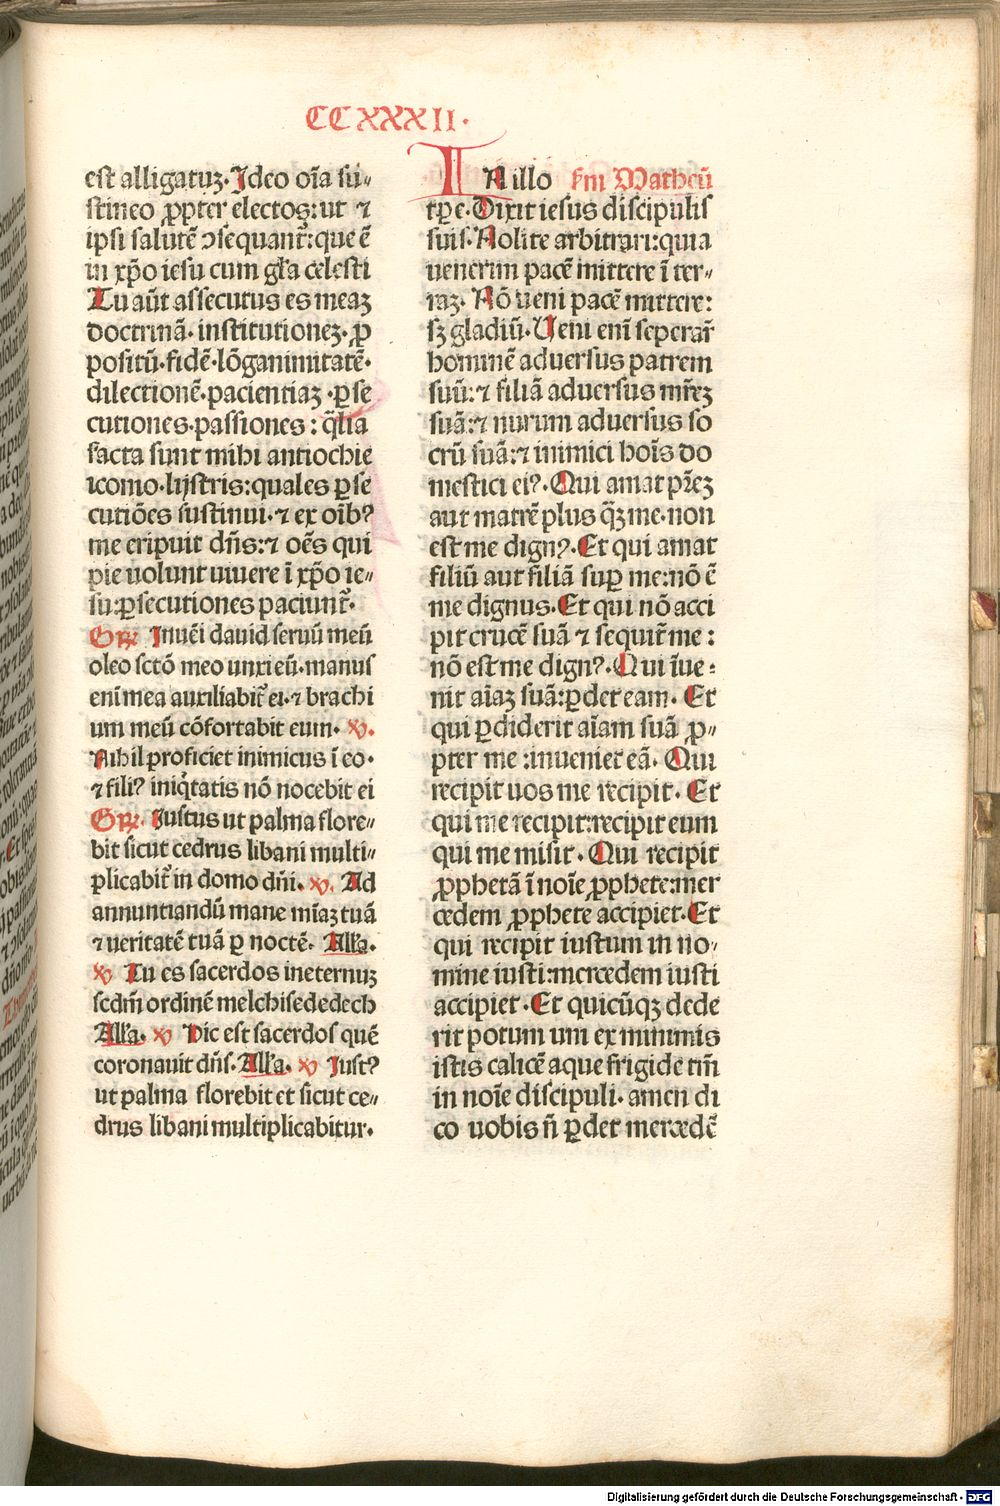 CCXXXII·
est alligatuȝ. Ideo oīa su⸗
stineo ꝓpter electos: ut ⁊
ipsi salutē ↄsequant᷑: que ē
in xp̄o iesu cum gl̄a celesti
Tu aūt assecutus es meaȝ
doctrinā. institutioneȝ. ꝓ
positū. fidē. lōganimitatē.
dilectionē. pacientiaȝ. ꝑse
cutiones. passiones: q̄lia
facta sunt mihi antiochie
iconio. lijstris: quales ꝑse
cutiōes sustinui. ⁊ ex oīb?
me eripuit dn̄s: ⁊ oēs qui
pie uolunt uiuere ī xp̄o ie⸗
su: ꝑsecutiones paciunt᷑.
Gr̄. Inuēi dauid seruū meū
oleo sctō meo unxi eū. manus
enī mea auxiliabit᷑ ei. ⁊ brachi
um meū cōfortabit eum. ꝟ.
Nihil proficiet inimicus ī eo.
⁊ fili? iniq̄tatis nō nocebit ei
Gr̄. Iustus ut palma flore⸗
bit sicut cedrus libani multi⸗
plicabit᷑ in domo dn̄i. ꝟ. Ad
annuntiandū mane mīaȝ tuā
⁊ ueritatē tuā ꝑ noctē. All'a.
ꝟ Tu es sacerdos ineternuȝ
scdm̄ ordinē melchisededech
All'a. ꝟ Hic est sacerdos quē
coronauit dn̄s. All'a. ꝟ Iust?
ut palma florebit et sicut ce⸗
drus libani multiplicabitur.
IN illo ẜm Matheū
tꝑe. Dixit iesus discipulis
suis. Nolite arbitrari: quia
uenerim pacē mittere ī ter⸗
raȝ. Nō ueni pacē mittere:
sȝ gladiū. Ueni enī seperar̄
hominē aduersus patrem
suū: ⁊ filiā aduersus mr̄eȝ
suā: ⁊ nurum aduersus so
crū suā: ⁊ inimici hoīs do
mestici ei?. Qui amat pr̄eȝ
aut matrē plus q̄ȝ me. non
est me dign?. Et qui amat
filiū aut filiā suꝑ me: nō ē
me dignus. Et qui nō acci
pit crucē suā ⁊ sequit᷑ me:
nō est me dign?. Qui īue⸗
nit aīaȝ suā: ꝑdet eam. Et
qui ꝑdiderit aīam suā ꝓ⸗
pter me: inueniet eā. Qui
recipit uos me recipit. Et
qui me recipit: recipit eum
qui me misit. Qui recipit
ꝓphetā ī noīe ꝓphete: mer
cedem ꝓphete accipiet. Et
qui recipit iustum in no⸗
mine iusti: mercedem iusti
accipiet. Et quicūqȝ dede
rit potum uni ex minimis
istis calicē aque frigide tm̄
in noīe discipuli. amen di
co uobis n̄ ꝑdet mercedē
Digitalisierung gefördert durch die Deutsche Forschungsgemeinschaft - DFG